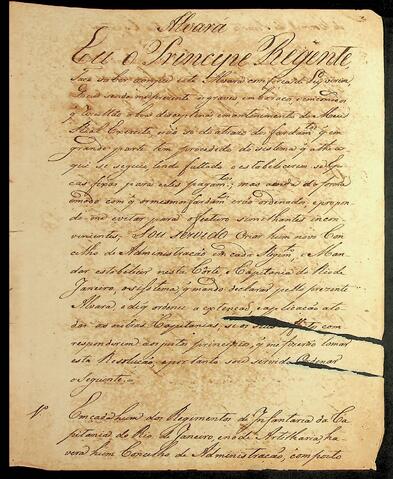 Alvará
Eu o Principe Regente
Faço saber aos que este Alvará com força de Ley virem
que sendo me presente os graves embaraços, e inconvenientes
q̃ resultão a boa disciplina, e manutenimento do Meu
Real Exercito, não só do atrazo dos fardam.tos q̃ em
grande parte tem procedido do sistema q̃ athe a
qui se seguia, tendo faltado o estabelicerem se E
cas fixas para estes pagam.tos; mas ainda da forma
com q̃ os mesmos fardam.tos erão ordenados, e propon
do me evitar para o futuro semelhantes incon
venientes: Sou servido Criar hum novo Con
celho de Administração em cada Regim.to, e Man
dar estabelicer nesta Corte, e Capitania do Rio de
Janeiro, o sistema, q̃ mando declarar pelo prezente
Alvara, e
das as outras Capitanias, se os seus effeitos com
responderem aos justos principios, q̃ me fizerão tomar
esta Rezolução, e portanto sou servido Ordenar
o Seguinte.
1º
Em cada hum dos Regimentos de Infantaria da Ca
pitania do Rio de Janeiro, e no de Artilharia, ha
verá hum Concelho de Administração, composto